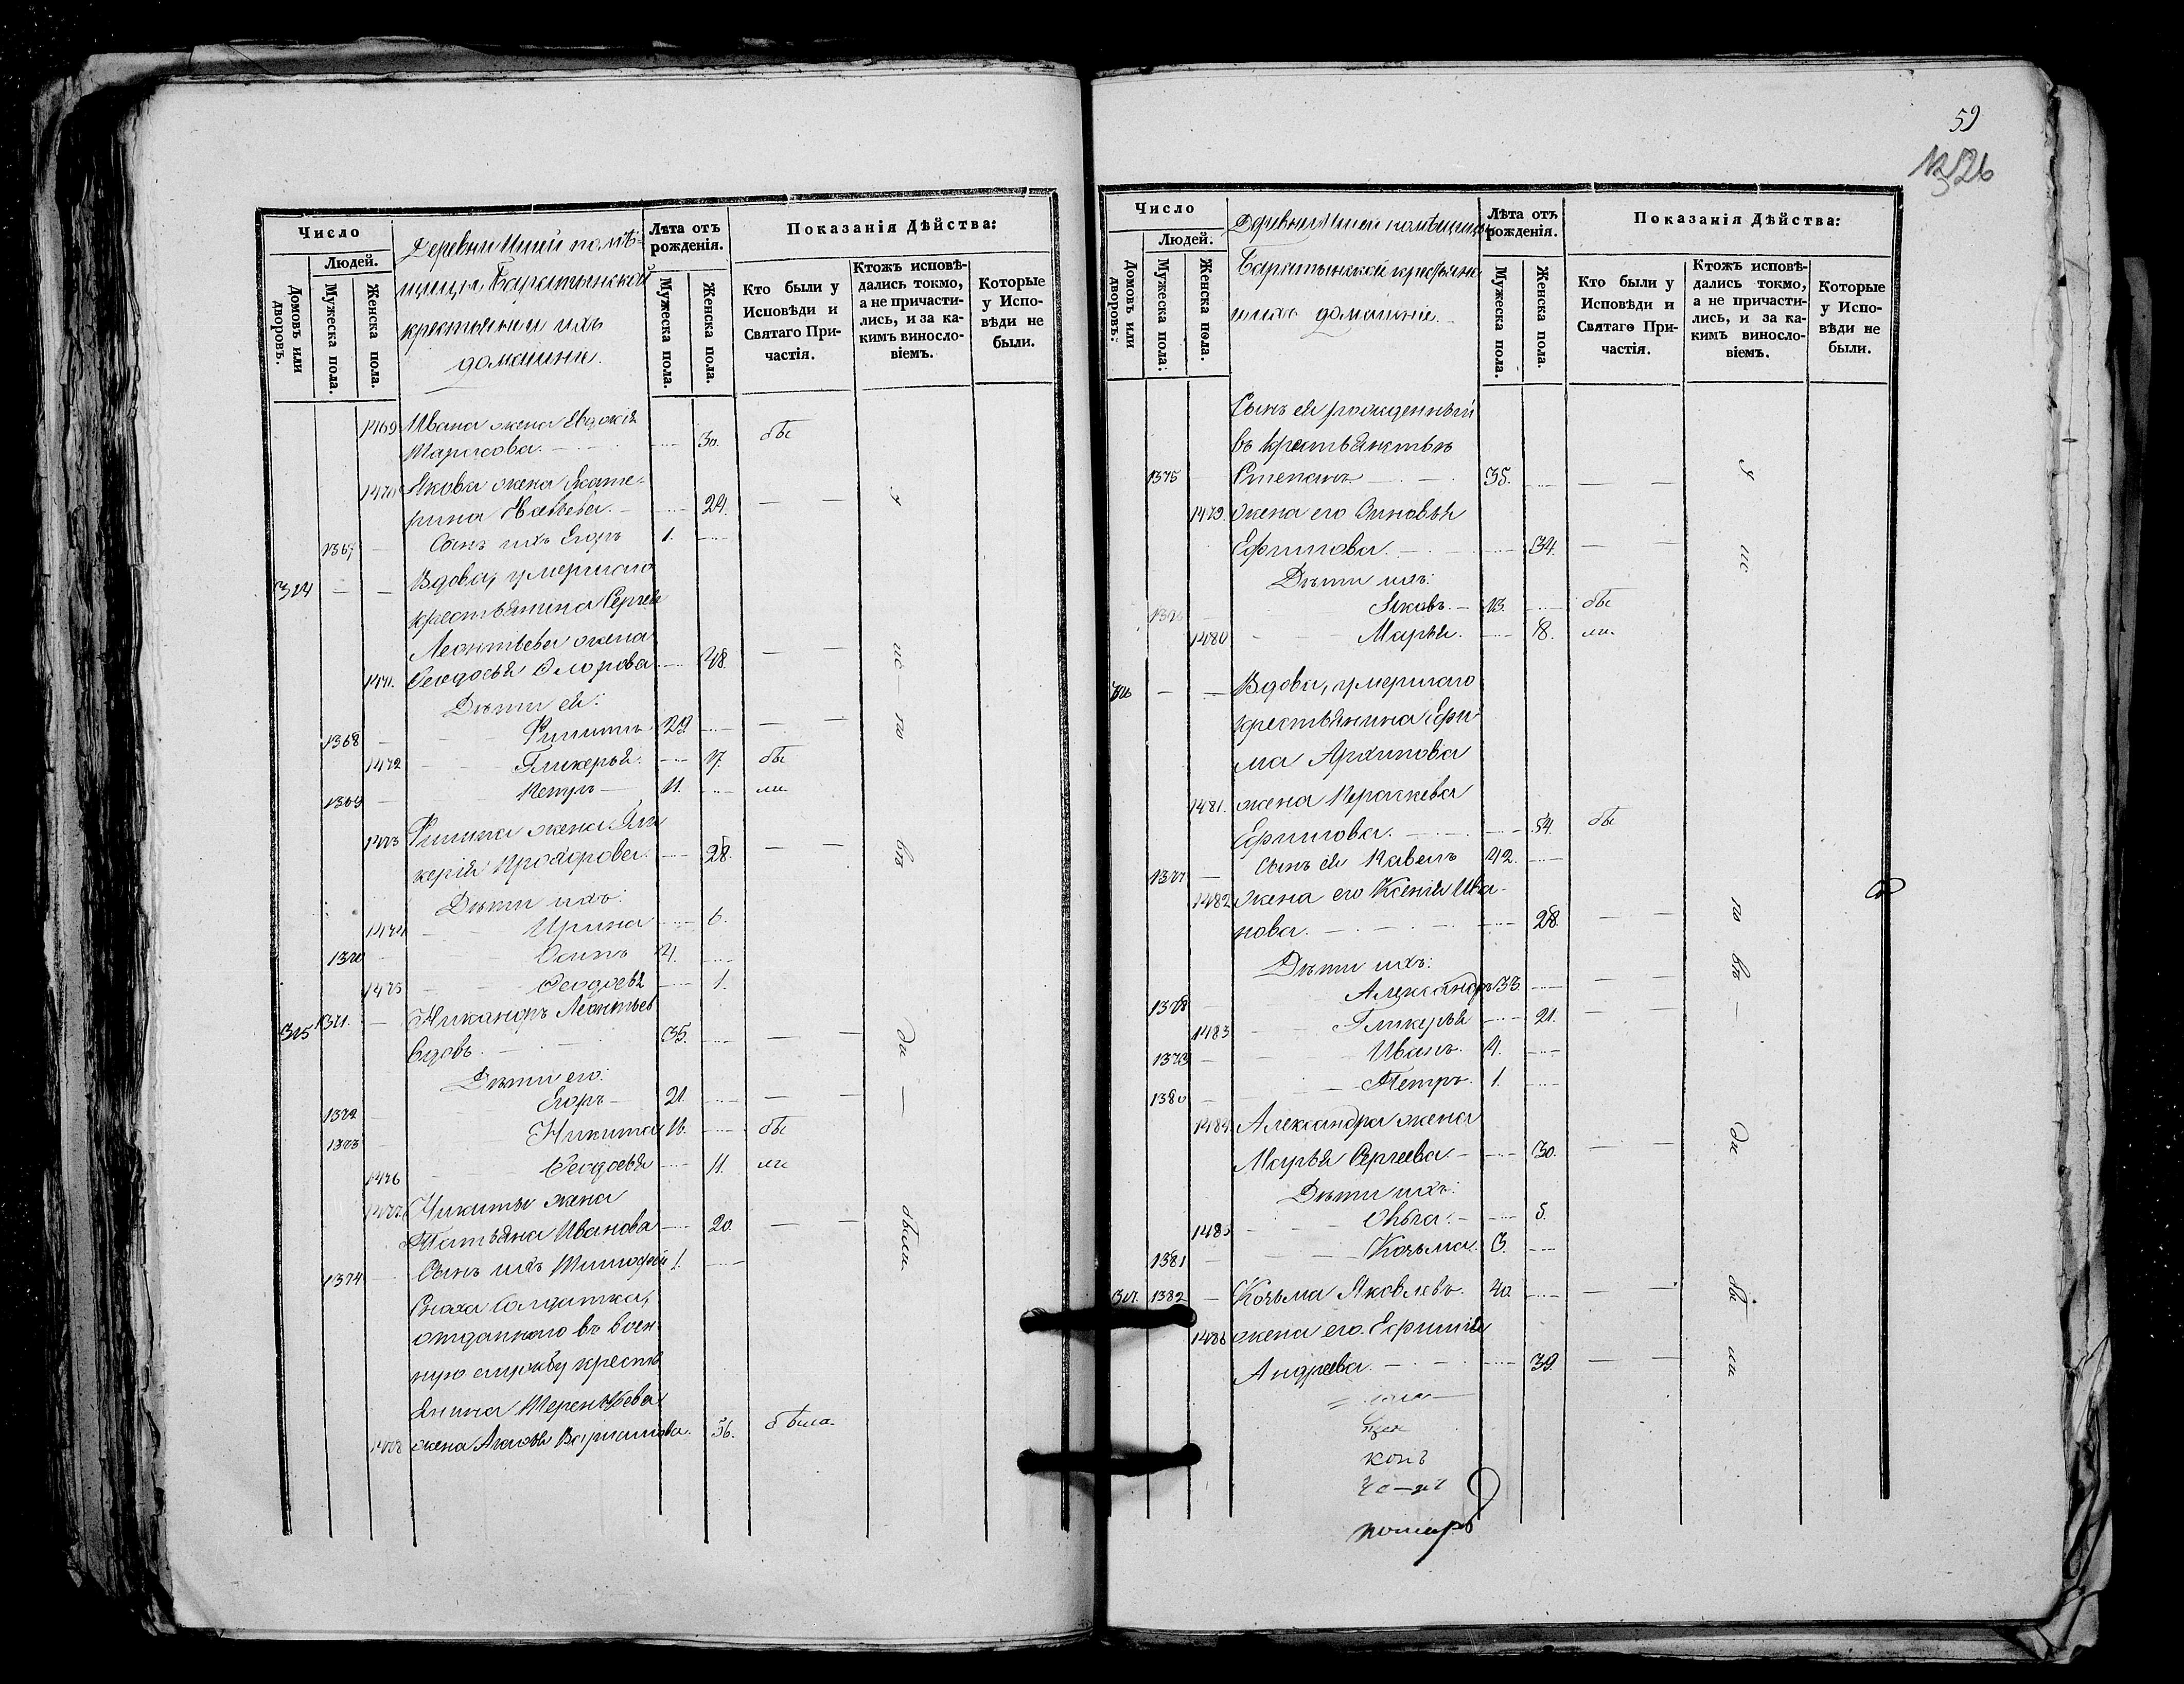 Число
Людей.
Домовъ или дворовъ.
Мужеска пола.
Женска пола.
Деревни Иней помѣ-
щицы Баратынской
крестьяни ихъ
домашнии.
Лѣта отъ рожденія.
Мужеска пола.
Женска пола.
Показанія Дѣйства:
Кто были у Исповѣди и Святаго Причастія.
Ктожъ исповѣдались токмо, а не причастились, и за какимъ винословіемъ.
Которые у Исповѣди не были.
1469 Ивана жена Евдокія
30. бы
1470 Якова жена Екате-
рина 24. — —
1367 — Сынъ ихъ Егоръ 1.
314 — — Вдова, умершаго
крестьянина Сергея
Леонтьева жена
1471. Феодосья 48. — —
Дѣти ея:
1368 — Филиппъ 29 — —
1472 Гликерья. 17. бы
1369 — Петръ 11. ли
1473 Филипа жена Гли
керія Прохорова 28. — —
Дѣти ихъ:
1474 Ирина 6.
1370 Осипъ 4.
1475 Феодосья 1.
315 1371. — Никаноръ Леонтьев
вдовъ. 35. — —
Дѣти его:
1372 Егоръ 21. — —
1373 Никита 16. бы
1476 Феодосья 11. ли
1477 Никиты жена
Татьяна Иванова 20. — —
1374 — Сынъ ихъ Тимофей 1.
Сноха Солдатка,
отданнаго въ воен-
ную службу кресть
янина Терентьева
1478 жена 56. была.
59
Число
Людей.
Домовъ или дворовъ:
Мужеска пола:
Женска пола.
Деревни Иней помѣщицы
Баратынской крестьяне
и ихъ домашніе.
Лѣта отъ рожденія.
Мужеска пола.
Женска пола.
Показанія Дѣйства:
Кто были у Исповѣди и Святаго Причастія.
Ктожъ исповѣдались токмо, а не причастились, и за какимъ винословіемъ.
Которые у Исповѣди не были.
Сынъ ея рожденный
въ крестьянствѣ
1375 Степанъ 35. — —
1479. жена его Зиновья
Ефимова. 34. — —
Дѣти ихъ:
Яковъ. 13. бы
1480 Марья. 8. ли.
— — Вдова, умершаго
крестьянина Ефи
ма Архипова
1481. жена Параскева
Ефимова. 54. бы
1377 — Сынъ ея Павелъ 42.
1482 жена его Ксенія Ива-
нова. 28. — —
Дѣти ихъ:
1378 Александръ 33. — —
1483 Гликерья 21. — —
1379 Иванъ. 4.
1380 Петръ. 1.
1484 Александра жена
Марья Сергеева 30. — —
Дѣти ихъ:
Ольга. 5.
1381 Козьма. 3.
1382 — Козьма Яковлевъ. 40. — —
1486 жена его Евфимія
Андреева. 39. — —